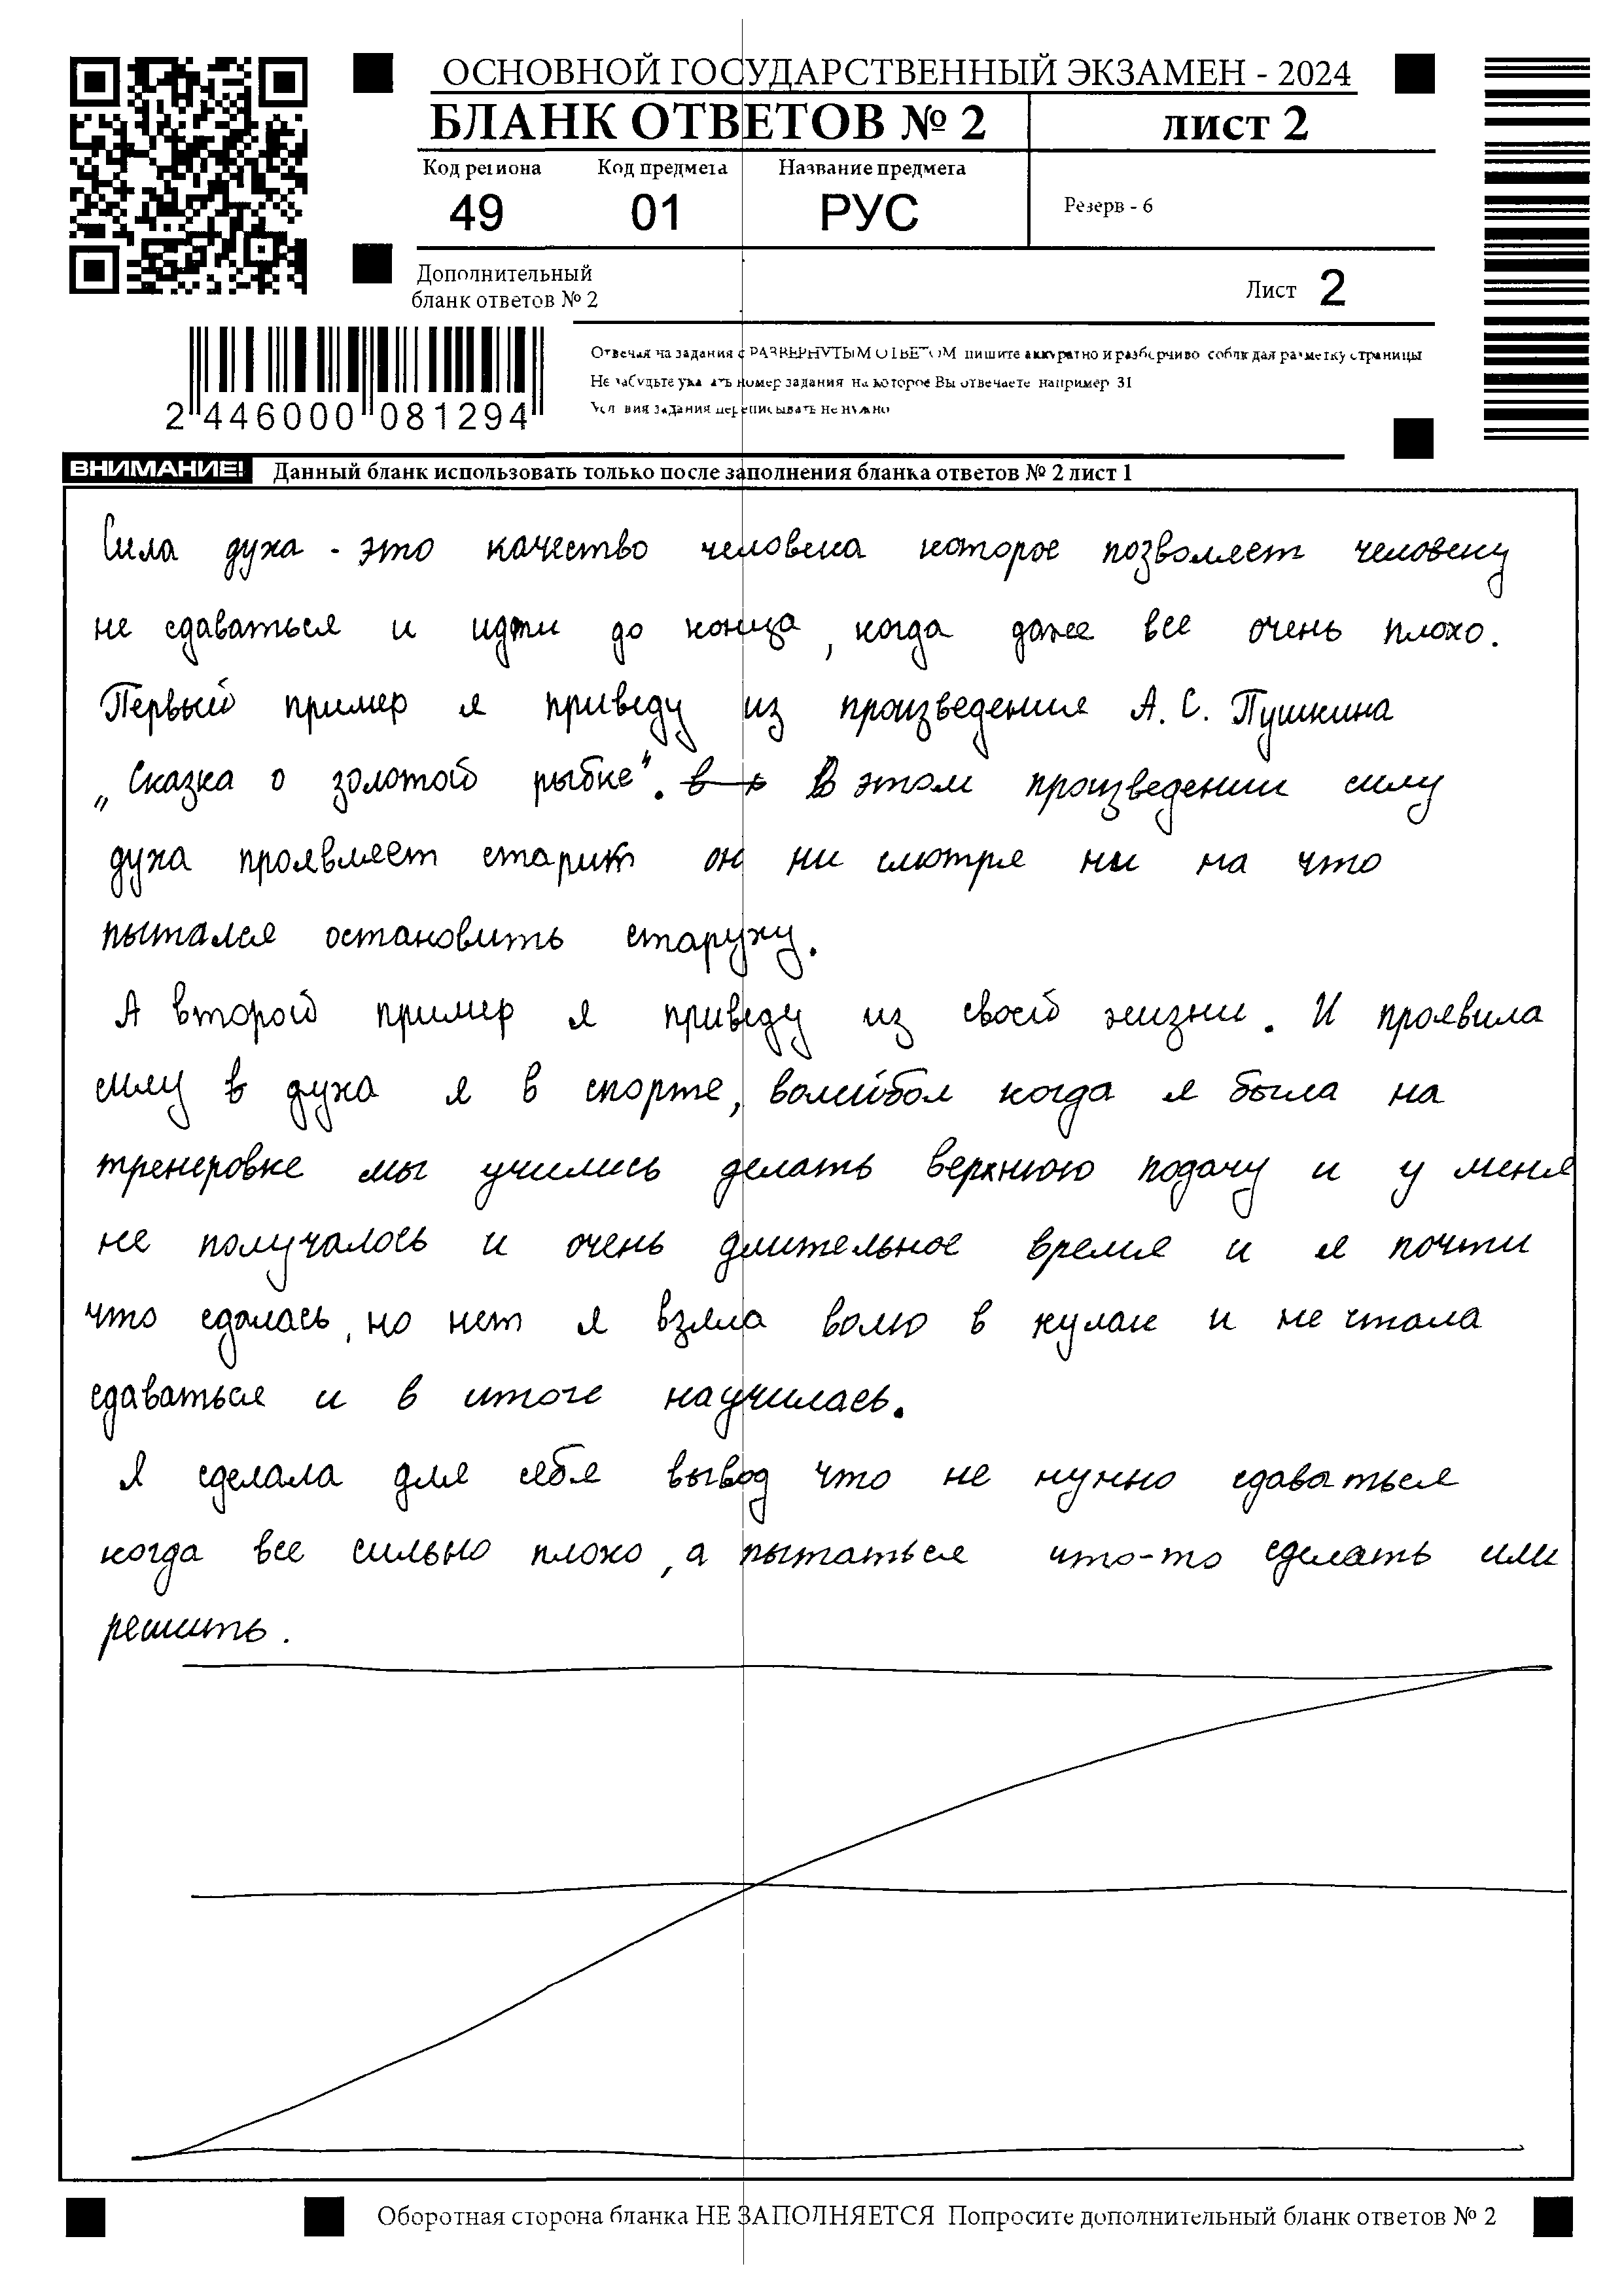 ОСНОВНОЙ ГОСУДАРСТВЕННЫЙ ЭКЗАМЕН - 2024
БЛАНК ОТВЕТОВ № 2
лист 2
Код региона Код предмета Название предмета
49 01 РУС
Резерв - 6
Дополнительный
бланк ответов № 2
Лист 2
Отвечая на задания с РАЗВЕРНУТЫМ ОТВЕТОМ пишите аккуратно и разборчиво соблюдая разметку страницы
Не забудьте указать номер задания на которое Вы отвечаете например 31
Условия задания переписывать не нужно
2 446000 081294
ВНИМАНИЕ! Данный бланк использовать только после заполнения бланка ответов № 2 лист 1
Сила духа - это качество человека которое позволяет человеку
не сдаваться и идти до конца, когда даже все очень плохо.
Первый пример я приведу из произведения А. С. Пушкина
„Сказка о золотой рыбке". В этом произведении силу
духа проявляет старик он ни смотря ни на что
пытался остановить старуху.
А второй пример я приведу из своей жизни. И проявила
силу в духа я в спорте, волейбол когда я была на
тренеровке мы учились делать верхнюю подачу и у меня
не получалось и очень длительное время и я почти
что сдалась, но нет я взяла волю в кулак и не стала
сдаваться и в итоге научилась.
Я сделала для себя вывод что не нужно сдаваться
когда все сильно плохо, а пытаться что-то сделать или
решить.
Оборотная сторона бланка НЕ ЗАПОЛНЯЕТСЯ Попросите дополнительный бланк ответов № 2